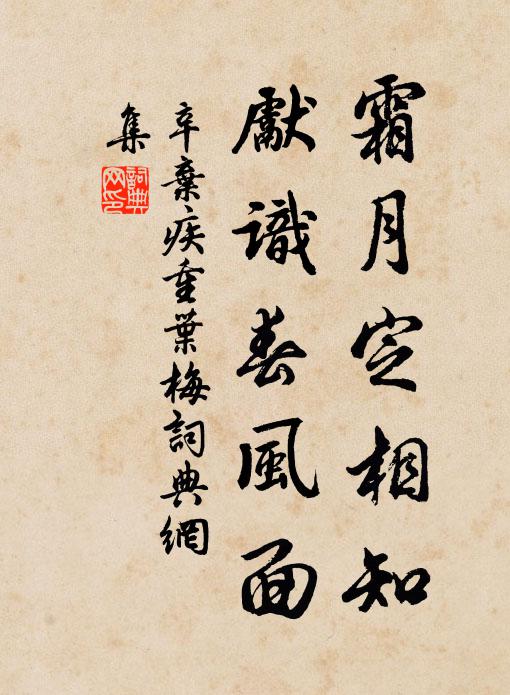 霜月定相知
獻識春風面
辛棄疾重葉梅詞典網
集
詞典網印